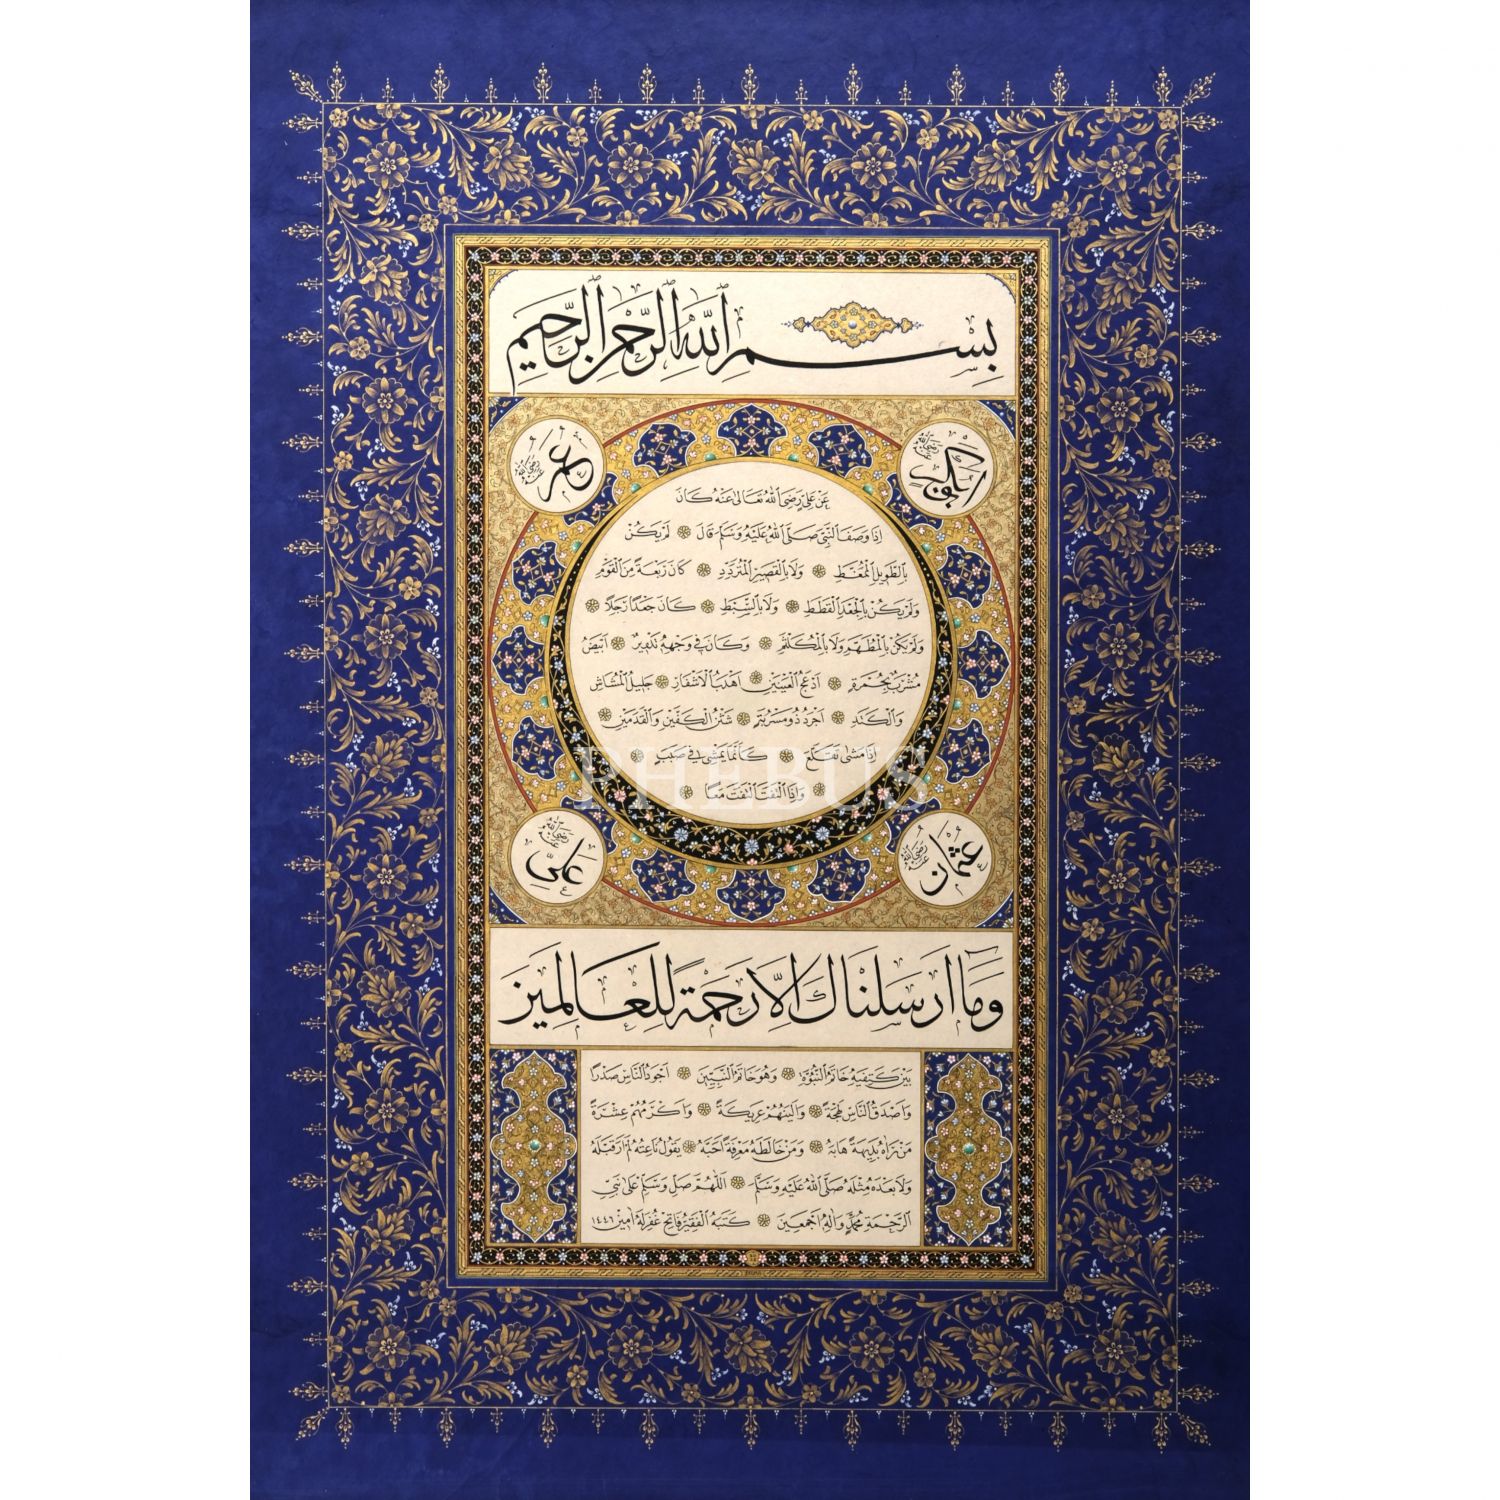 بِسْمِ اللّٰهِ الرَّحْمٰنِ الرَّحِيمِ
ابوبكر رضي الله عنه
عمر رضي الله عنه
عَنْ عَلِيٍّ رَضِيَ اللهُ تَعَالٰى عَنْهُ كَانَ
اِذَا وَصَفَ النَّبِيَّ صَلَّى اللهُ عَلَيْهِ وَسَلَّمَ قَالَ لَمْ يَكُنْ
بِالطَّوِيلِ الْمُمَّغِطِ وَلَا بِالْقَصِيرِ الْمُتَرَدِّدِ كَانَ رَبْعَةً مِنَ الْقَوْمِ
وَلَمْ يَكُنْ بِالْجَعْدِ الْقَطَطِ وَلَا بِالسَّبِطِ كَانَ جَعْدًا رَجِلًا
وَلَمْ يَكُنْ بِالْمُطَهَّمِ وَلَا بِالْمُكَلْثَمِ وَكَانَ فِي وَجْهِهِ تَدْوِيرٌ اَبْيَضُ
مُشْرَبٌ بِحُمْرَةٍ اَدْعَجُ الْعَيْنَيْنِ اَهْدَبُ الْاَشْفَارِ جَلِيلُ الْمُشَاشِ
وَالْكَتَدِ اَجْرَدُ ذُو مَسْرُبَةٍ شَثْنُ الْكَفَّيْنِ وَالْقَدَمَيْنِ
اِذَا مَشٰى تَقَلَّعَ كَاَنَّمَا يَمْشِي فِي صَبَبٍ
وَاِذَا الْتَفَتَ الْتَفَتَ مَعًا
PHEBUS
عثمان رضي الله عنه
علي رضي الله عنه
وَمَا اَرْسَلْنَاكَ اِلَّا رَحْمَةً لِلْعَالَمِينَ
بَيْنَ كَتِفَيْهِ خَاتَمُ النُّبُوَّةِ وَهُوَ خَاتَمُ النَّبِيِّينَ اَجْوَدُ النَّاسِ صَدْرًا
وَاَصْدَقُ النَّاسِ لَهْجَةً وَاَلْيَنُهُمْ عَرِيكَةً وَاَكْرَمُهُمْ عِشْرَةً
مَنْ رَاٰهُ بَدِيهَةً هَابَهُ وَمَنْ خَالَطَهُ مَعْرِفَةً اَحَبَّهُ يَقُولُ نَاعِتُهُ لَمْ اَرَ قَبْلَهُ
وَلَا بَعْدَهُ مِثْلَهُ صَلَّى اللهُ عَلَيْهِ وَسَلَّمَ اَللّٰهُمَّ صَلِّ وَسَلِّمْ عَلٰى نَبِيِّ
الرَّحْمَةِ مُحَمَّدٍ وَاٰلِهِ اَجْمَعِينَ كَتَبَهُ الْفَقِيرُ فَاتِح غُفِرَ لَهُ اٰمِين ١٤٤٦